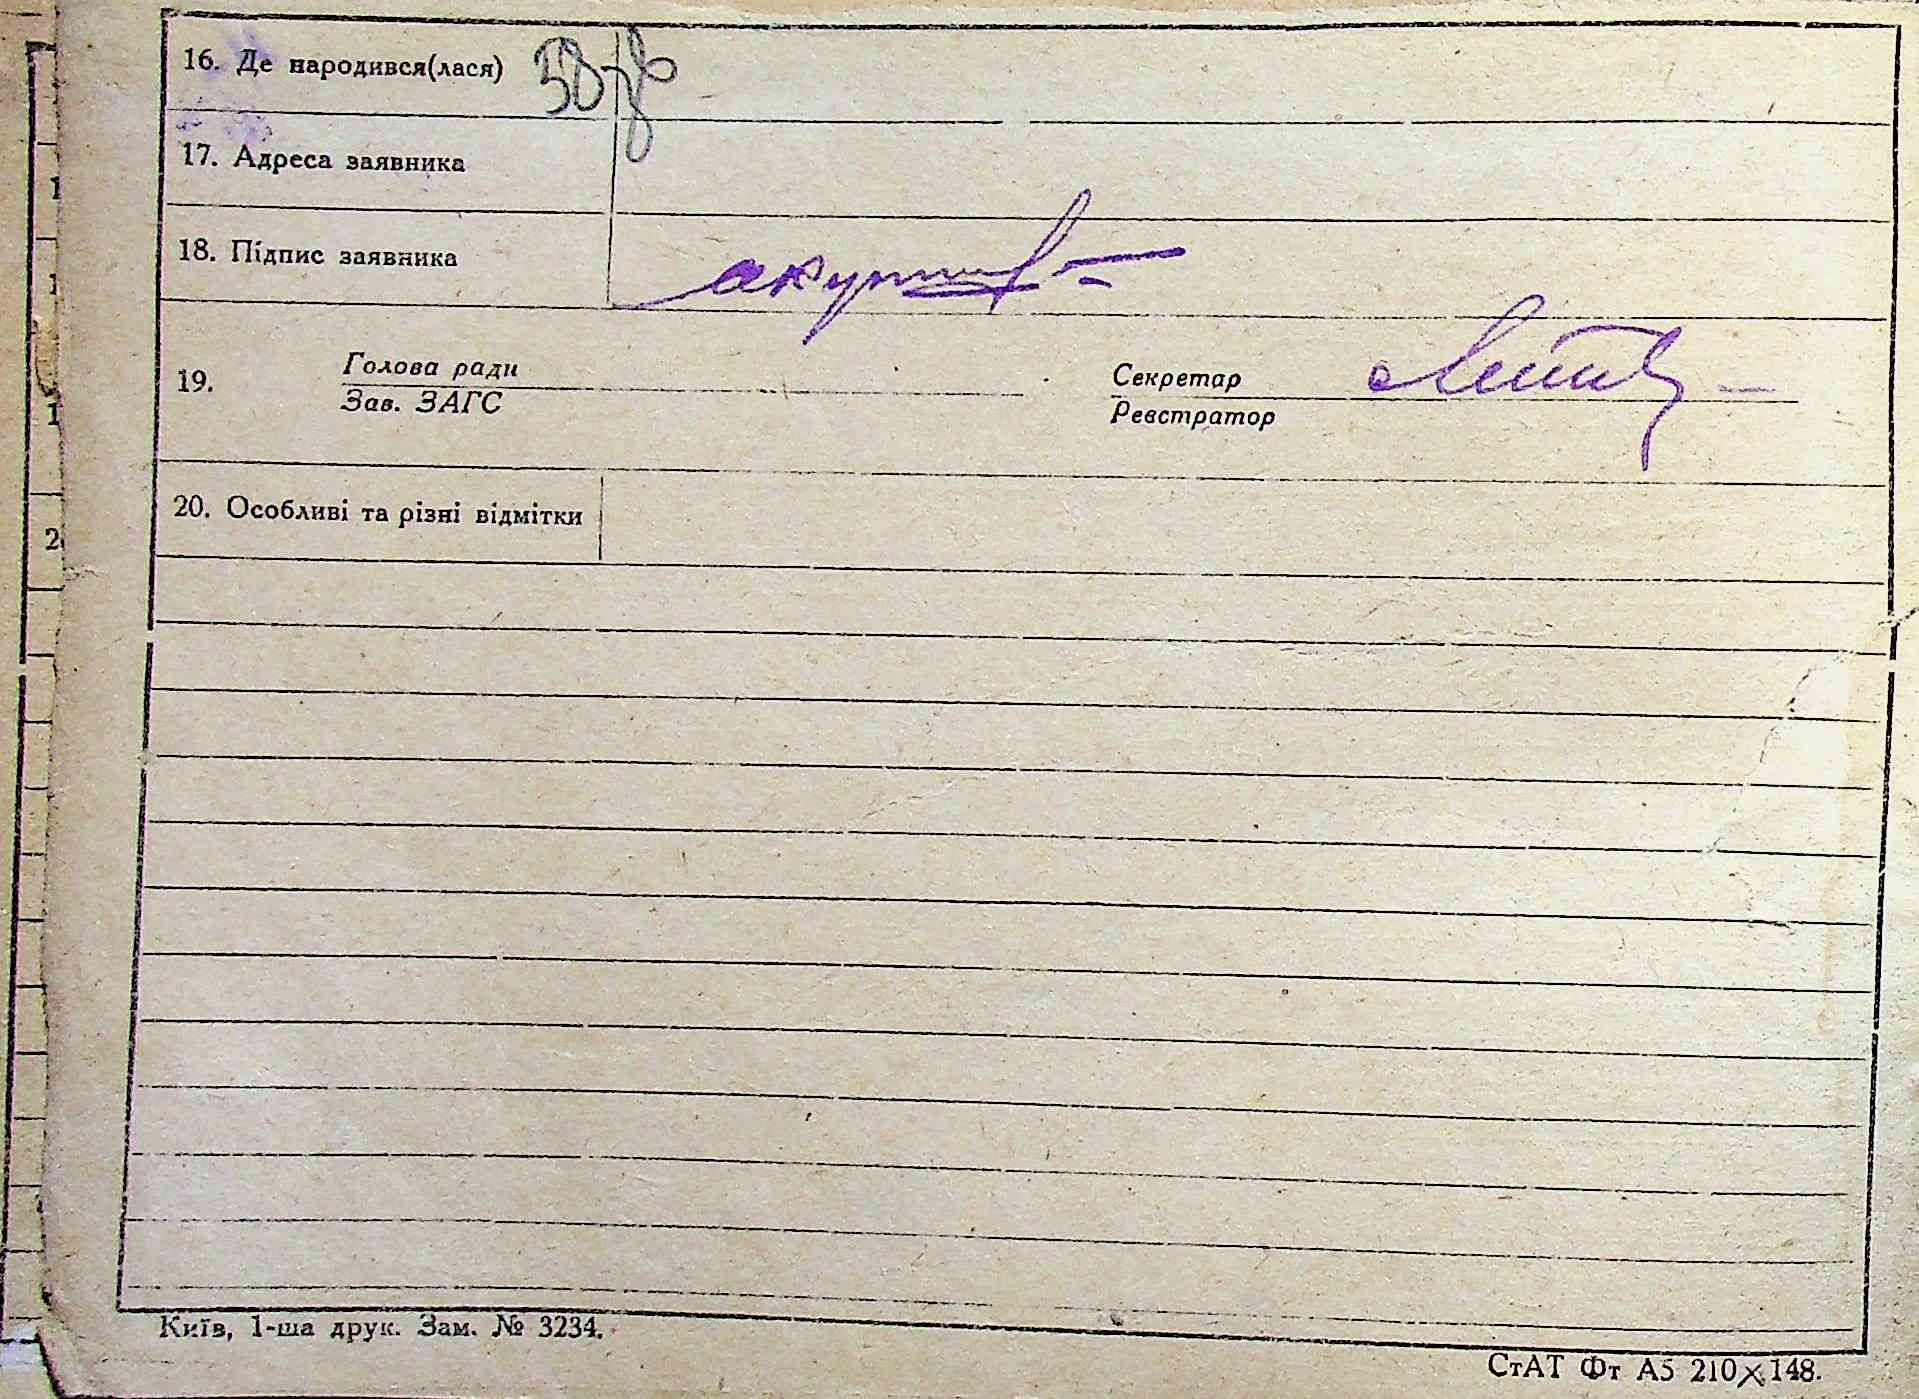 16. Де народився(лася)
17. Адреса заявника
18. Підпис заявника
19. Голова ради
Зав. ЗАГС
Секретар
Реєстратор
20. Особливі та різні відмітки
Київ, 1-ша друк. Зам. № 3234.
СтАТ Фт А5 210×148.